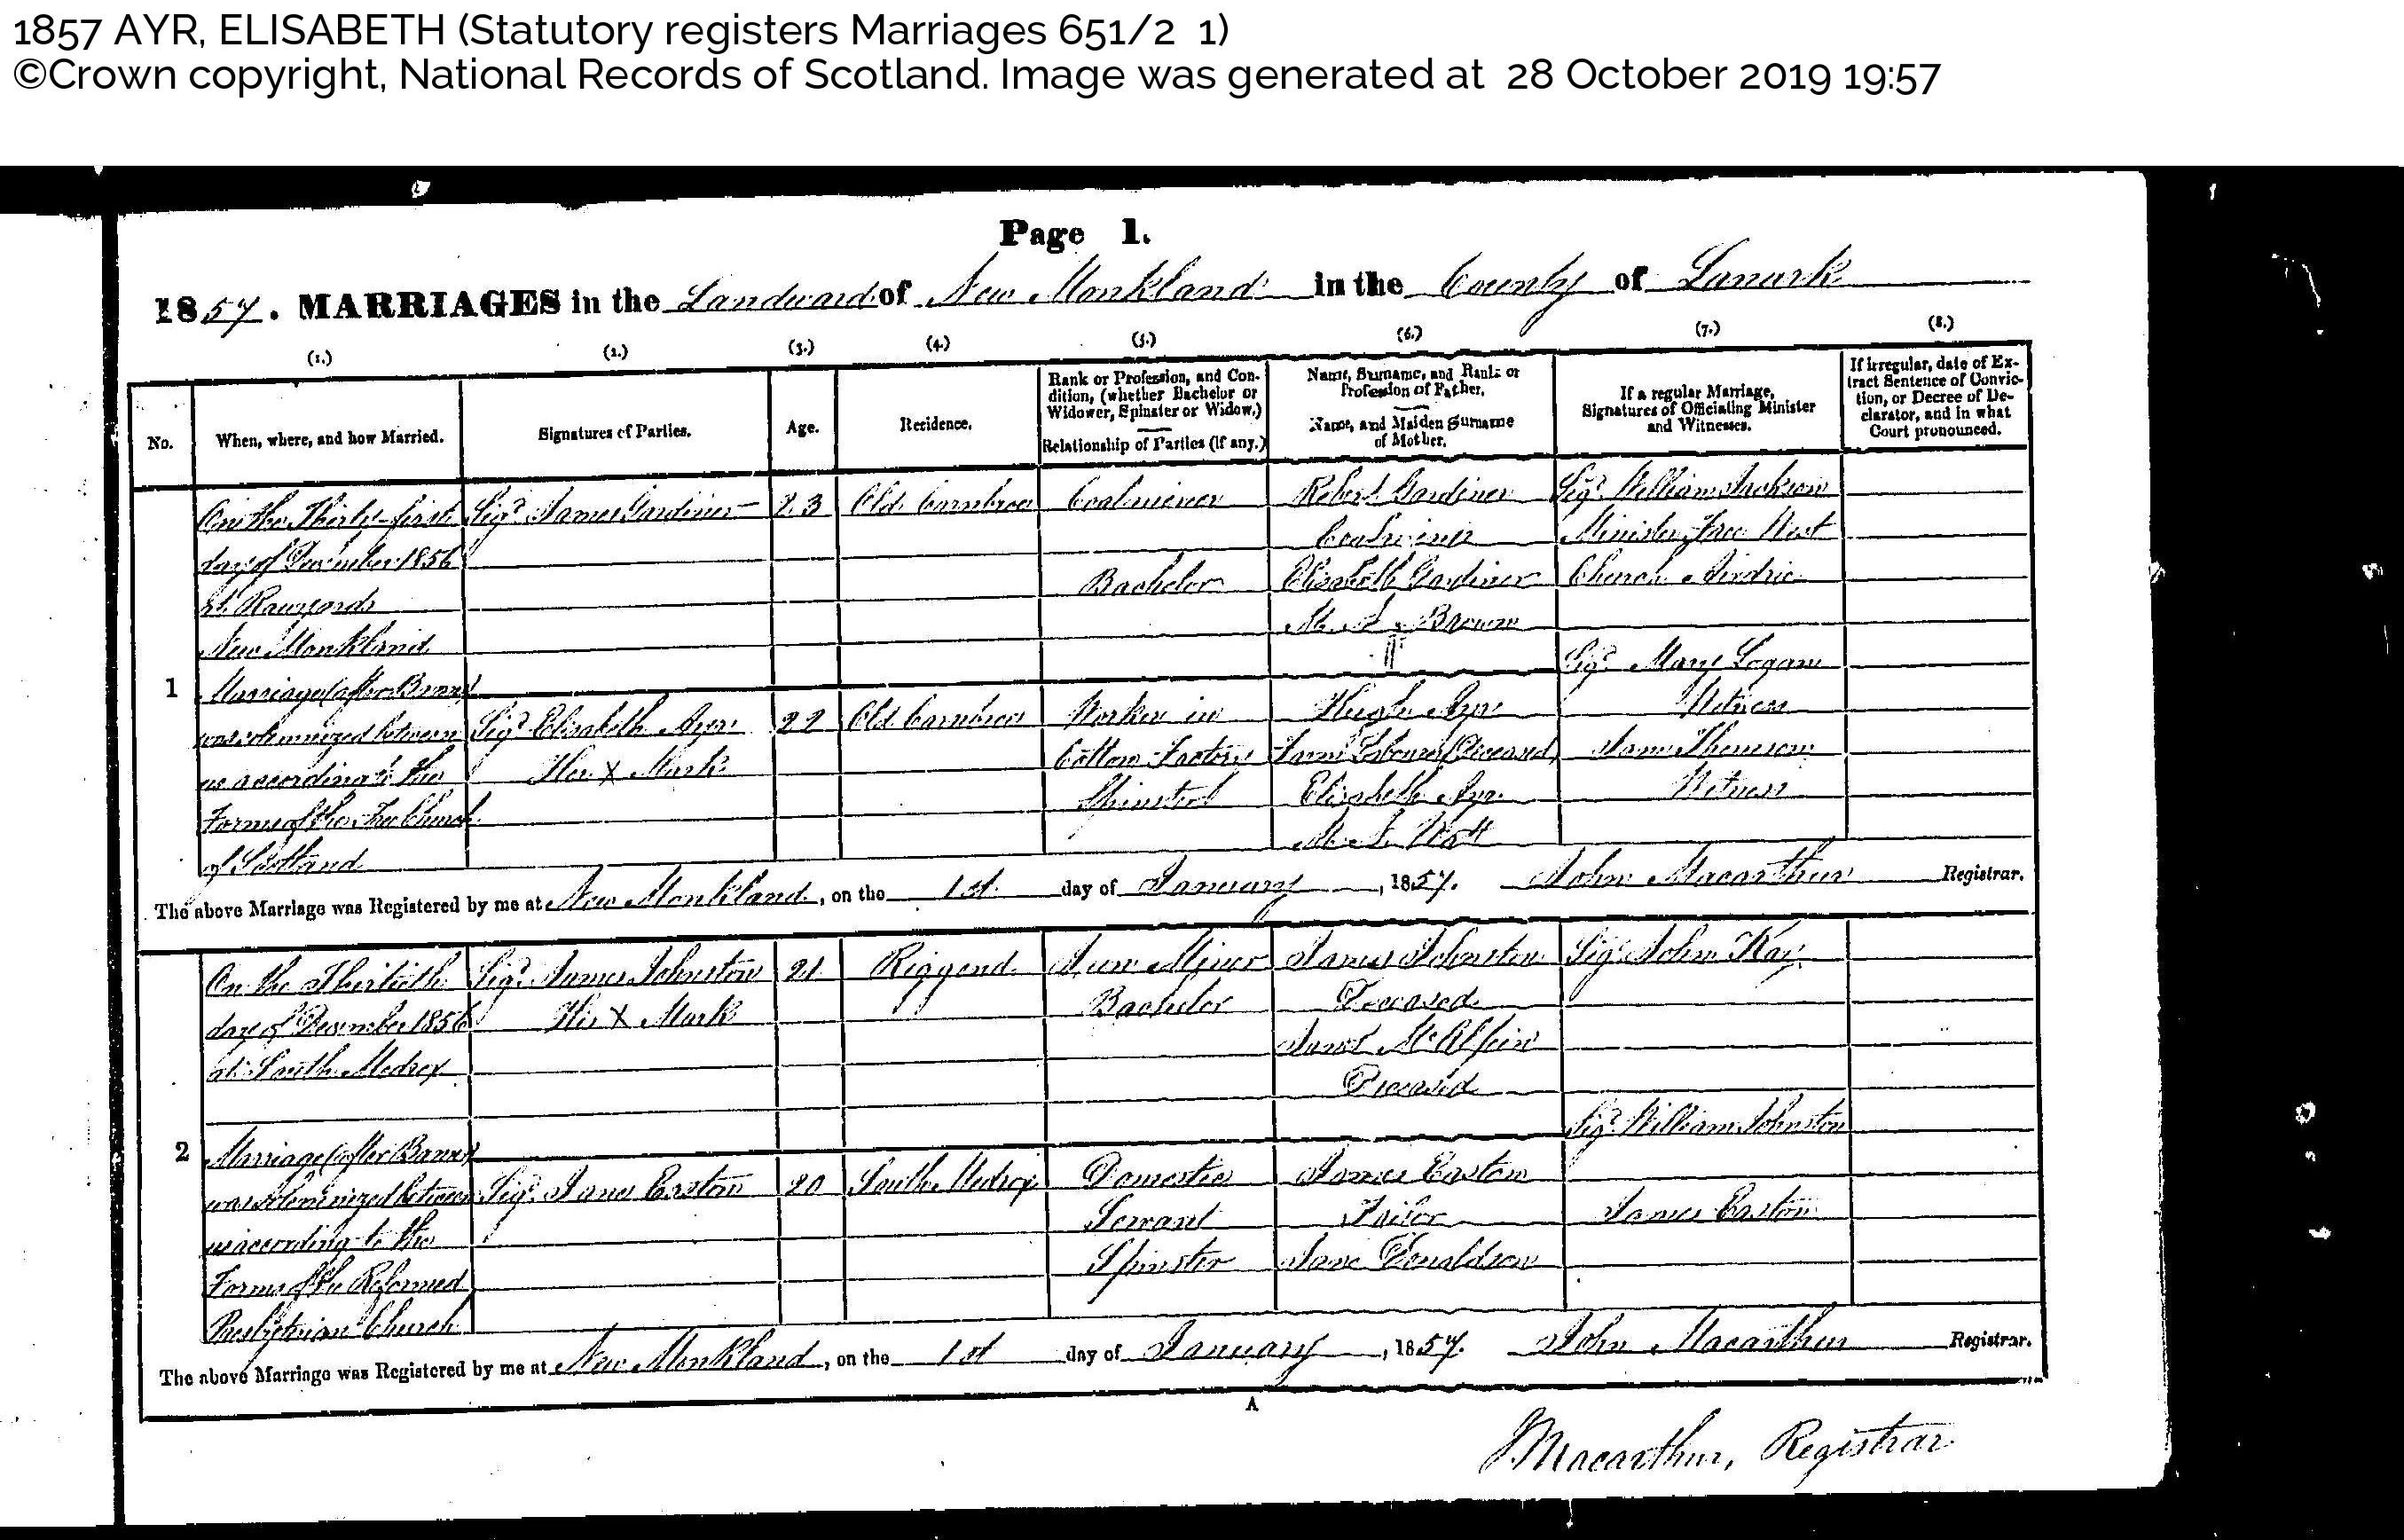 1857 AYR, ELISABETH (Statutory registers Marriages 651/2 1)
©Crown copyright, National Records of Scotland. Image was generated at 28 October 2019 19:57
Page 1.
1857. MARRIAGES in the Landward of New Monkland in the County of Lanark
(1.) (2.) (3.) (4.) (5.) (6.) (7.) (8.)
No.
When, where, and how Married.
Signatures of Parties.
Age.
Residence.
Rank or Profession, and Con-
dition, (whether Bachelor or
Widower, Spinster or Widow.)
Relationship of Parties (if any.)
Name, Surname, and Rank or
Profession of Father.
Name, and Maiden Surname
of Mother.
If a regular Marriage,
Signatures of Officiating Minister
and Witnesses.
If irregular, date of Ex-
tract Sentence of Convic-
tion, or Decree of De-
clarator, and in what
Court pronounced.
1
On the Thirty-first
day of December 1856
at Rawyards
New Monkland
Marriage (after Banns)
was solemnized between
us according to the
Forms of the Free Church
of Scotland
Sigd. James Gardiner
23
Old Carnbroe
Coalminer
Bachelor
Robert Gardiner
Coalminer
Elisabeth Gardiner
M. S. Brown
Sigd. William Jackson
Minister Free West
Church Airdrie
Sigd. Elisabeth Ayr
Her X Mark
22
Old Carnbroe
Worker in
Cotton Factory
Spinster
Hugh Ayr
Farm Labourer (Deceased)
Elisabeth Ayr
M. S. Watt
Sigd. Mary Logan
Witness
Witness
The above Marriage was Registered by me at New Monkland, on the 1st day of January, 1857. John Macarthur Registrar.
2
On the Thirtieth
day of December 1856
at South Medrox
Marriage (after Banns)
was solemnized between
us according to the
Forms of the Reformed
Presbyterian Church
Sigd. James Johnston
His X Mark
21
Riggend
Miner
Bachelor
James Johnston
Deceased
Janet McAlpin
Deceased
Sigd. John Kay
Sigd. Jane Easton
20
South Medrox
Domestic
Servant
Spinster
James Easton
Tailor
Jane Donaldson
Sigd. William Johnston
James Easton
The above Marriage was Registered by me at New Monkland, on the 1st day of January, 1857. John Macarthur Registrar.
A
J Macarthur, Registrar